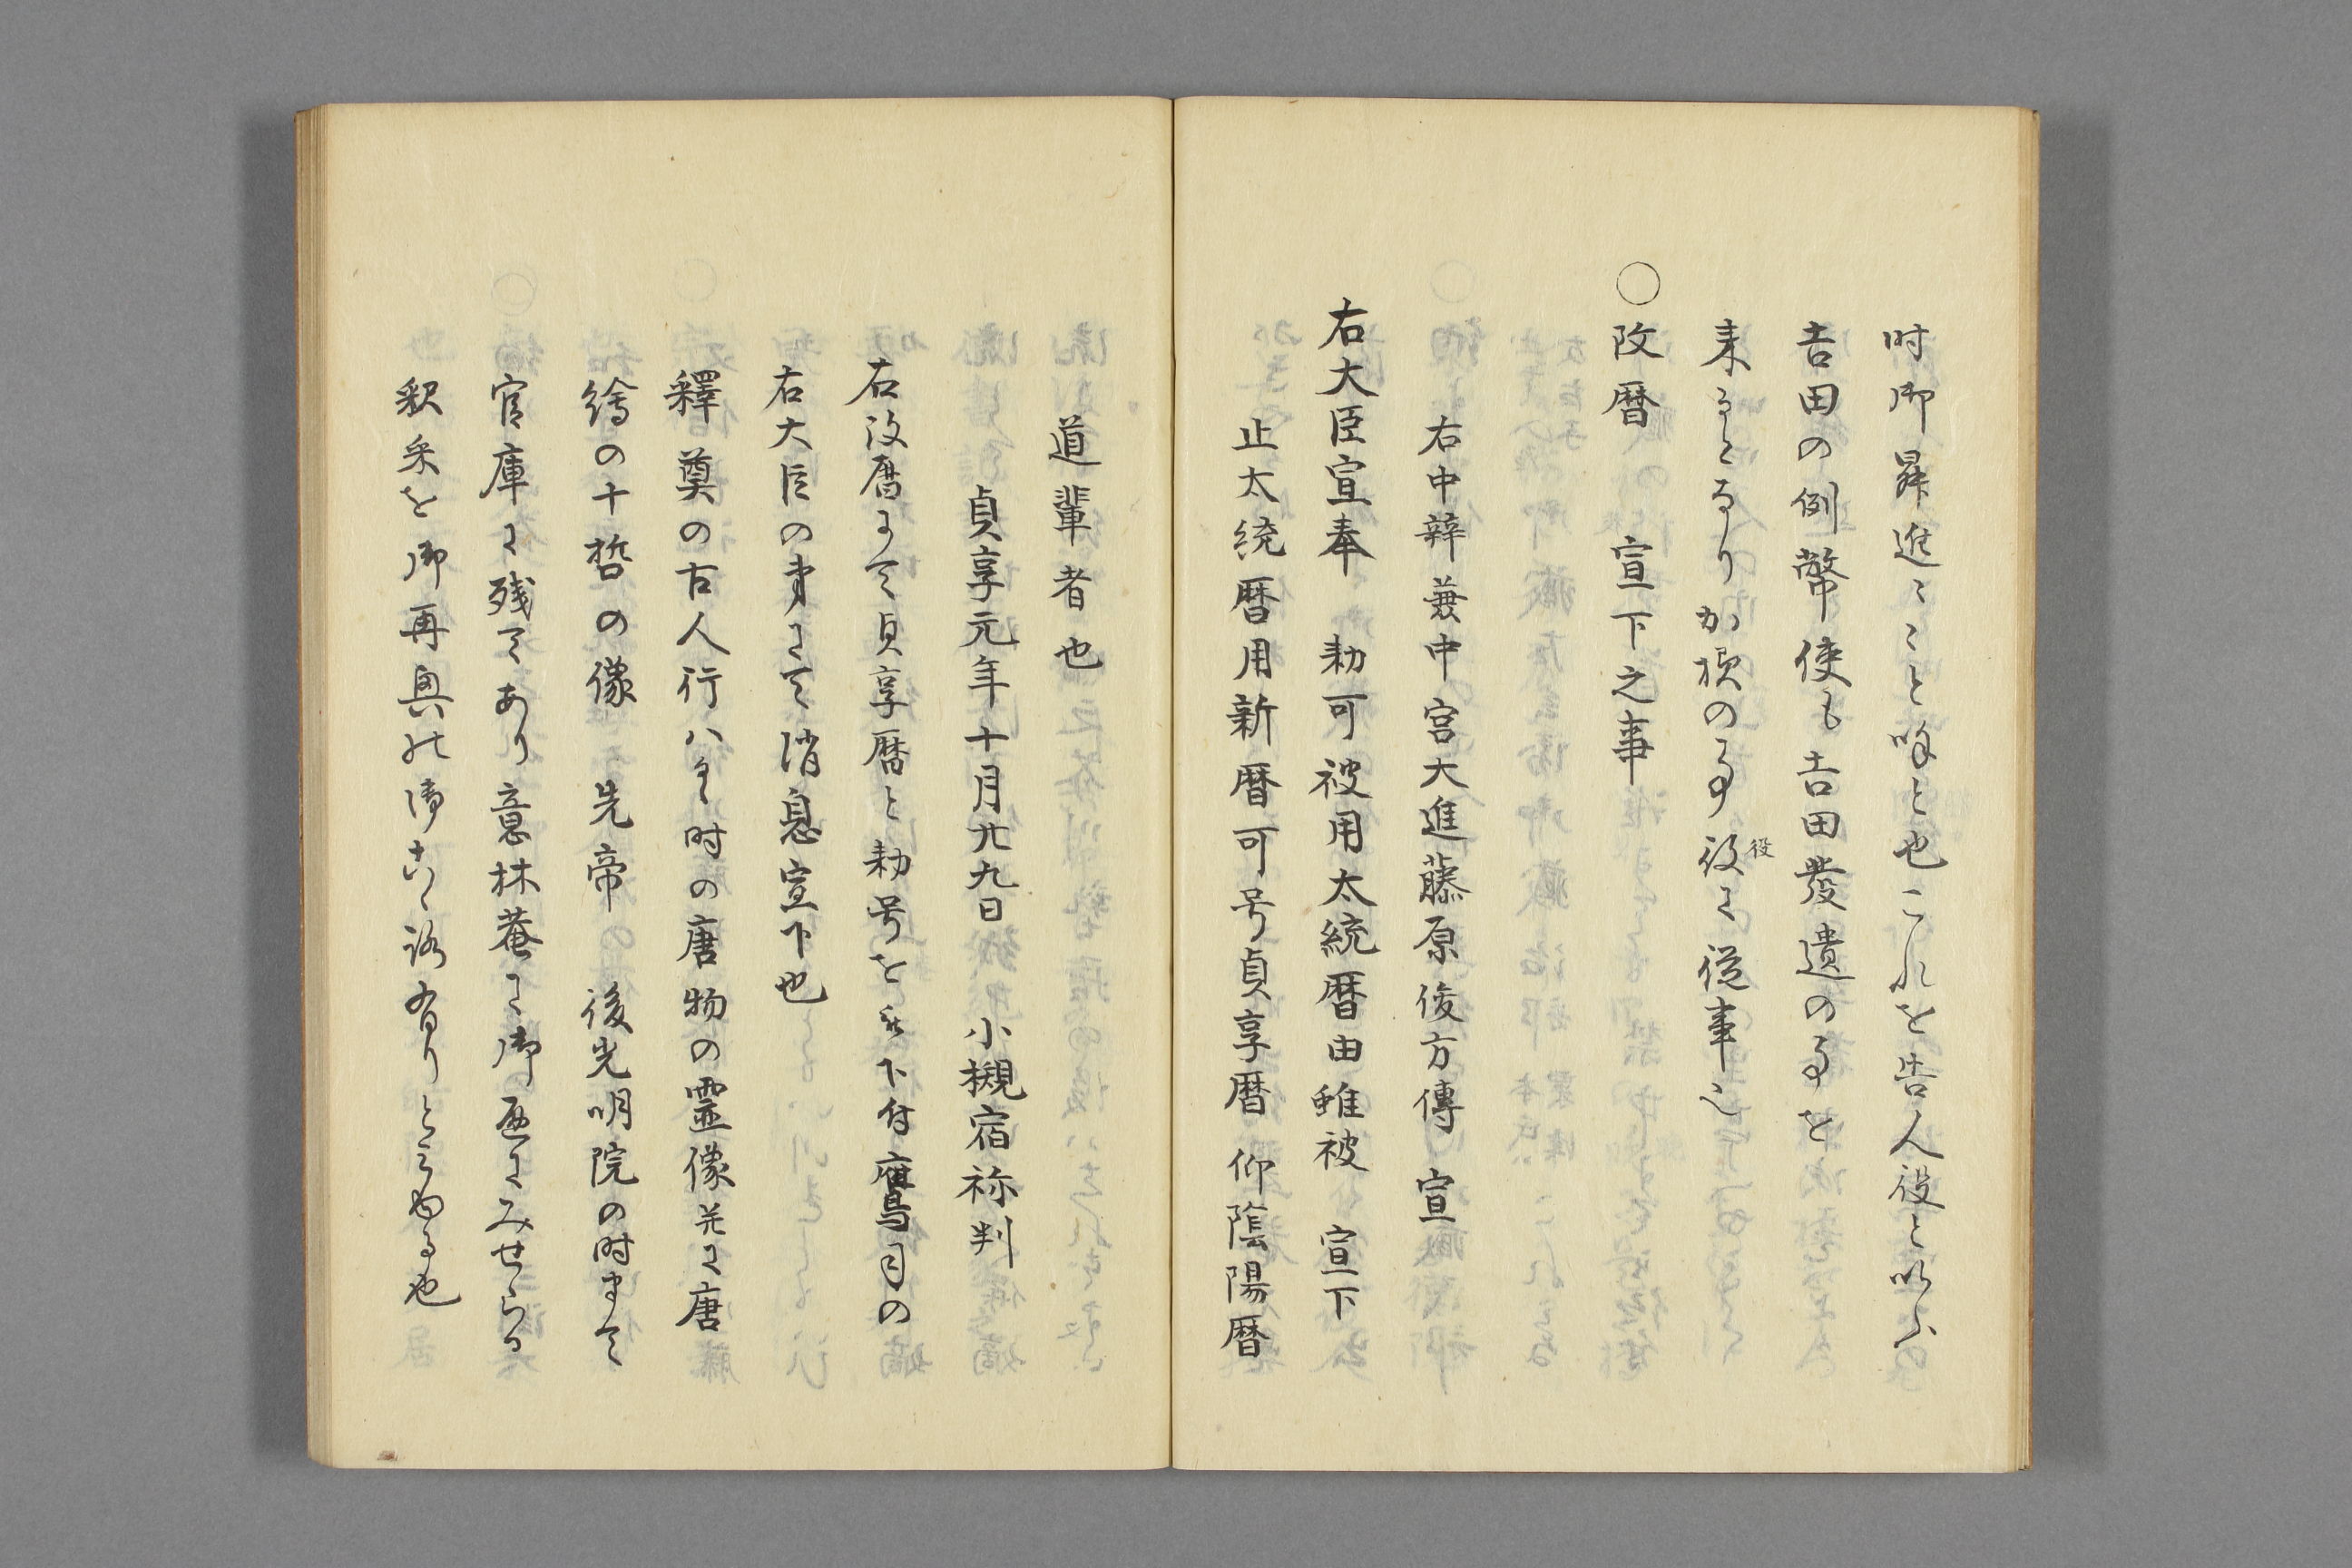 时御昇進〻〻こと呼と也これを告人役と以ふ
吉田の例幣使も吉田發遣のるを
来るとなりか様の事役に従事也
役
○改暦　宣下之事
右中辨兼中宮大進藤原俊方傳　宣
右大臣宣奉　勅可被用太統暦由雖被　宣下
止太統暦用新暦可号貞享暦仰陰陽暦
道輩者也
貞享元年十月廿九日　小槻宿祢判
右改暦にて貞享暦と勅号を被下付鷹司の
右大臣の時にて消息宣下也
釋奠の古人行ハる時の唐物の霊像并に唐
繪の十哲の像　先帝　後光明院の時まて
官庫に残てあり意林菴に御尋にみせらる
釈采を御再興の御志有りと
也